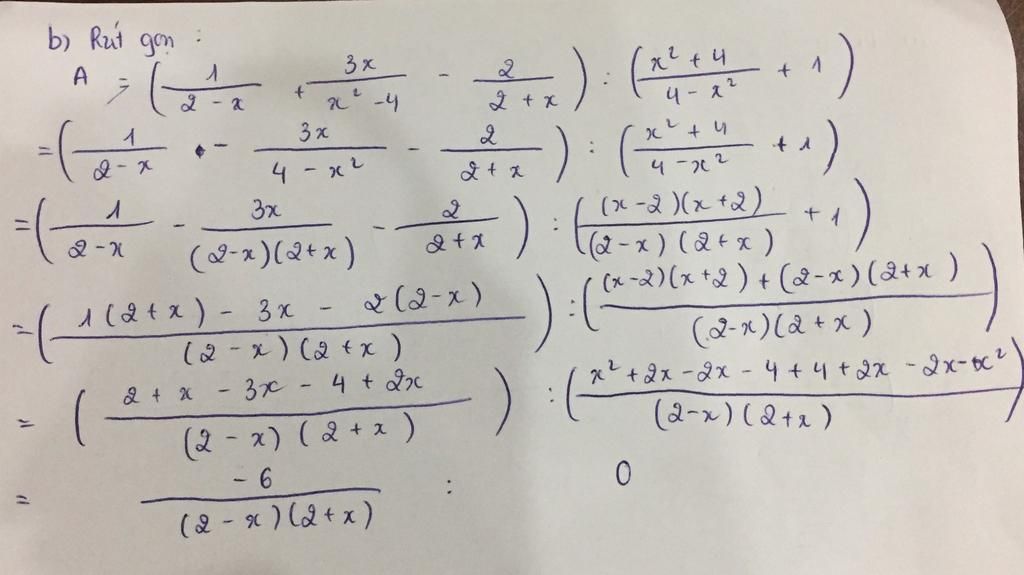 b) Rút gọn :
A = ( 1/(2 - x) + 3x/(x² - 4) - 2/(2 + x) ) : ( (x² + 4)/(4 - x²) + 1 )
= ( 1/(2 - x) - 3x/(4 - x²) - 2/(2 + x) ) : ( (x² + 4)/(4 - x²) + 1 )
= ( 1/(2 - x) - 3x/((2-x)(2+x)) - 2/(2 + x) ) : ( (x-2)(x+2)/((2-x)(2+x)) + 1 )
= ( (1(2+x) - 3x - 2(2-x))/((2-x)(2+x)) ) : ( ((x-2)(x+2) + (2-x)(2+x))/((2-x)(2+x)) )
= ( (2 + x - 3x - 4 + 2x)/((2-x)(2+x)) ) : ( (x² + 2x - 2x - 4 + 4 + 2x - 2x - x²)/((2-x)(2+x)) )
= -6/((2-x)(2+x)) : 0